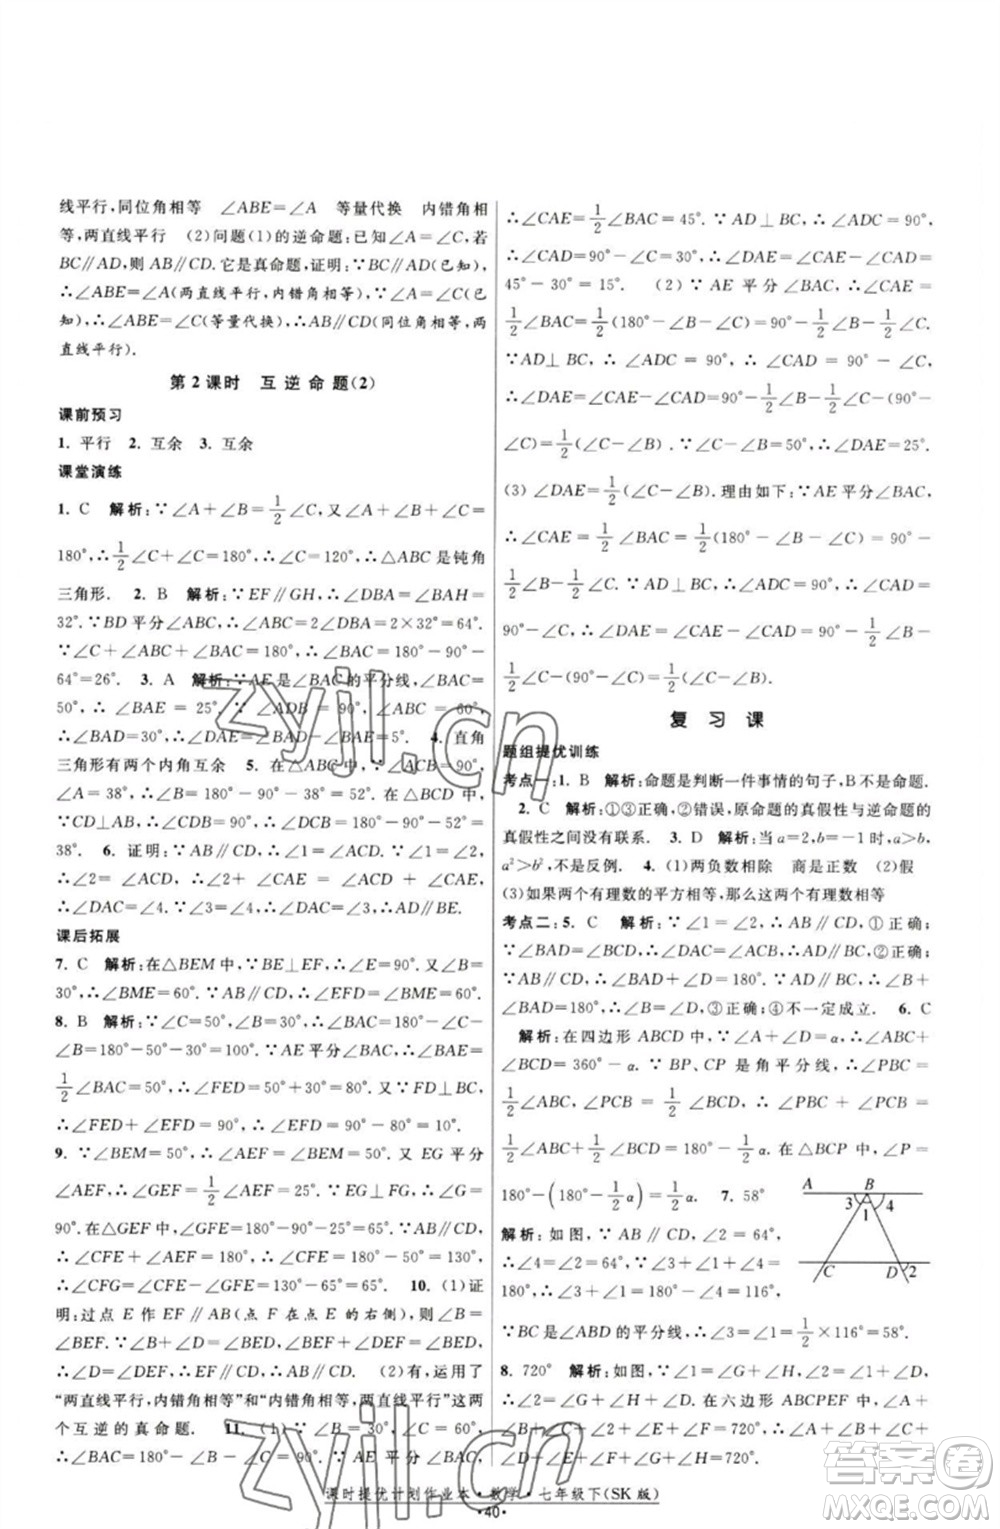 线平行,同位角相等 ∠ABE=∠A 等量代换 内错角相
等,两直线平行 (2)问题(1)的逆命题:已知∠A=∠C,若
BC∥AD,则AB∥CD.它是真命题,证明:∵BC∥AD(已知),
∴∠ABE=∠A(两直线平行,内错角相等),∵∠A=∠C(已
知),∴∠ABE=∠C(等量代换),∴AB∥CD(同位角相等,两
直线平行).
第2课时 互逆命题(2)
课前预习
1. 平行 2. 互余 3. 互余
课堂演练
1. C 解析:∵∠A+∠B=1/2∠C,又∠A+∠B+∠C=
180°,1/2∠C+∠C=180°,∴∠C=120°,∴△ABC是钝角
三角形. 2. B 解析:∵EF∥GH,∴∠DBA=∠BAH=
32°.∵BD平分∠ABC,∴∠ABC=2∠DBA=2×32°=64°.
∵∠C=90°,∴∠BAC=180°-∠C-∠ABC=180°-90°-
64°=26°. 3. A 解析:∵AE是∠BAC的平分线,∠BAC=
50°,∴∠BAE=25°.∵∠ADB=90°,∠ABC=60°,
∴∠BAD=30°,∴∠BAE+∠BAD=55°. 4. 直角
三角形有两个内角互余 5. 在△ABC中,∵∠ACB=90°,
∠A=38°,∴∠B=180°-∠ACB-∠A=180°-90°-38°=52°.
∵CD⊥AB,∴∠CDB=90°,∴∠BCD=180°-90°-52°=
38°. 6. 证明:∵∠1=∠B,∠ACE=∠1+∠2,
∴∠2=∠ACD,∵∠ACD=∠4,
∴∠ACD=∠4.∵∠1=∠2,∴∠2=∠4,∴AD∥BE.
课后拓展
7. C 解析:在△BEM中,∵BE⊥EF,∴∠E=90°.又∠B=
30°,∴∠BME=60°.∵AB∥CD,∴∠EFD=∠BME=60°.
8. B 解析:∵∠C=50°,∠B=30°,∴∠BAC=180°-∠C-
∠B=180°-50°-30°=100°.∵AE平分∠BAC,∴∠BAE=
1/2∠BAC=50°,∴∠FED=50°+30°=80°.又∵FD⊥BC,
∴∠FED+∠EFD=90°,∴∠EFD=90°-80°=10°.
9. ∵∠BEM=50°,∴∠AEF=∠BEM=50°.又EG平分
∠AEF,∴∠GEF=1/2∠AEF=25°.∵EG⊥FG,∴∠G=
90°.在△GEF中,∠GFE=180°-90°-25°=65°.∵AB∥CD,
∴∠CFE+∠AEF=180°,∴∠CFE=180°-50°=130°,
∴∠CFG=∠CFE-∠GFE=130°-65°=65°. 10. (1)证
明:过点E作EF∥AB(点F在点E的右侧),则∠B=
∠BEF.∵AB∥CD,∴EF∥CD,∴∠D=∠DEF,
∴∠D=∠DEF,∴∠B+∠D=∠BED. (2)有,运用了
“两直线平行,内错角相等”和“内错角相等,两直线平行”这两
个互逆的真命题. 11. (1)∵∠B=30°,∠C=60°,
∴∠BAC=180°-30°-60°=90°.∵AE平分∠BAC,
∴∠CAE=1/2∠BAC=45°.∵AD⊥BC,∴∠ADC=90°,
∴∠CAD=90°-∠C=30°,∴∠DAE=∠CAE-∠CAD=
45°-30°=15°. (2)∵AE平分∠BAC,∴∠CAE=
1/2∠BAC=1/2(180°-∠B-∠C)=90°-1/2∠B-1/2∠C.
∵AD⊥BC,∴∠ADC=90°,∴∠CAD=90°-∠C,
∴∠DAE=∠CAE-∠CAD=90°-1/2∠B-1/2∠C-(90°-
∠C)=1/2∠C-1/2∠B.∵∠C-∠B=50°,∴∠DAE=25°.
(3)∠DAE=1/2(180°-∠B-∠C).理由如下:∵AE平分∠BAC,
∴∠CAE=1/2∠BAC=1/2(180°-∠B-∠C)=90°-
1/2∠B-1/2∠C.∵AD⊥BC,∴∠ADC=90°,∴∠CAD=
90°-∠C,∴∠DAE=∠CAE-∠CAD=90°-1/2∠B-
1/2∠C-(90°-∠C)=1/2(∠C-∠B).
复习课
题组提优训练
考点一:1. B 解析:命题是判断一件事情的句子,B不是命题.
2. C 解析:①③正确,②错误,原命题的真假性与逆命题的
真假性之间没有联系. 3. D 解析:当a=2,b=-1时,a>b,
a²>b²,不是反例. 4. (1)两负数相除 商是正数 (2)假
(3)如果两个有理数的平方相等,那么这两个有理数相等
考点二:5. C 解析:∵∠1=∠2,∴AB∥CD,①正确,
∵∠BAD=∠BCD,∴∠BAD+∠D=180°,
∴AD∥BC,∴∠BAD+∠D=180°.又∵∠B+
∠BAD=180°,∴∠B=∠D,③正确;②④不一定成立. 6. C
解析:在四边形ABCD中,∵∠A+∠D=α,∴∠ABC+
∠BCD=360°-α.∵BP、CP是角平分线,∴∠PBC=
1/2∠ABC,∠PCB=1/2∠BCD,∴∠PBC+∠PCB=
1/2∠ABC+1/2∠BCD=180°-1/2α.在△PBC中,∠P=
180°-(180°-1/2α)=1/2α. 7. 58°
解析:如图,∵∠2=64°,
∴∠4=∠2=64°,∴∠1+∠3=
180°-∠4=180°-64°=116°.
∵BC是∠ABD的平分线,∴∠1=∠3=1/2×116°=58°.
A B 3 1 4 C D 2
8. 720° 解析:如图,∵∠1=∠G+∠H,∠1=∠2,
∴∠2=∠G+∠H.在六边形ABCPEF中,∠A+
∠B+∠C+∠2+∠E+∠F=720°,∴∠A+
∠B+∠C+∠G+∠H+∠E+∠F=720°.
课时提优计划作业本·数学·七年级下(SK版)
·40·
zyjl.cn
zyjl.cn
答案圈
MXQE.COM